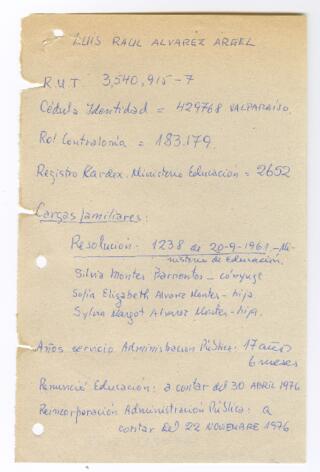 LUIS RAUL ALVAREZ ARGEL
R.U.T 3,540,915-7
Cédula Identidad = 429768 VALPARAISO.
Rol Contraloría = 183.179.
Registro Kardex. Ministerio Educación = 2652
Cargas familiares:
Resolución. 1238 de 20-9-1961.-Mi-
nisterio de Educación.
Silvia Montes Barrientos - cónyuge
Sofía Elizabeth Alvarez Montes - hija
Sylvia Margot Alvarez Montes - hija.
Años servicio Administración Pública: 17 años
6 meses
Renunció Educación: a contar del 30 ABRIL 1976
Reincorporación Administración Pública: a
contar del 22 NOVIEMBRE 1976